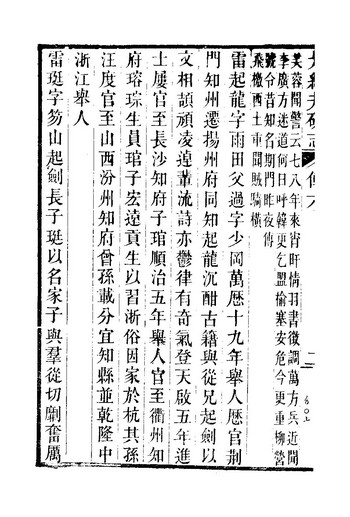 光緒井研志
二
芙蓉聞警云七八年來宵旰情羽書徵調萬方兵近聞
李廣方迷道何日呼韓更乞盟偷塞安危今更重柳營
號令昔知名期門昨夜傳
飛檄西土重聞賊騎橫
雷起龍字雨田父過字少岡萬歷十九年舉人歷官荆
門知州遷揚州府同知起龍沉酣古籍與從兄起劍以
文相頡頏凌遑葷流詩亦鬱律有奇氣登天啟五年進
士屢官至長沙知府子琯順治五年舉人官至衢州知
府瑢琮生員琯子宏遠貢生以習浙俗因家於杭其孫
汪度官至山西汾州知府曾孫載分宜知縣並乾隆中
浙江舉人
雷珽字笏山起劍長子珽以名家子與羣從切劘奮厲